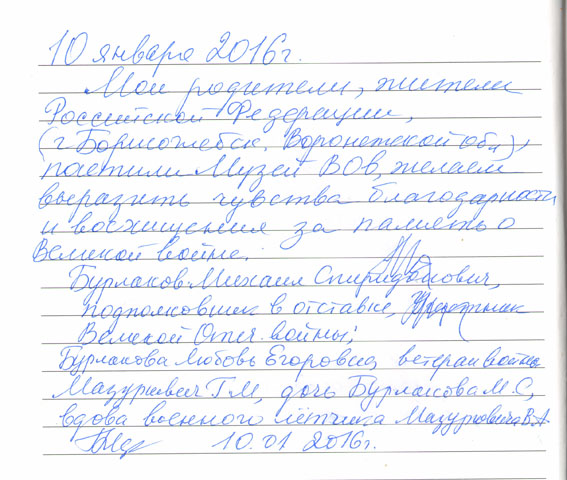 10 января 2016 г.
Мои родители, жители
Российской Федерации,
(г. Борисоглебск, Воронежской обл),
посетили Музей ВОв, желаем
выразить чувства благодарности
и восхищения за память о
Великой войне.
Бурлаков Михаил Спиридонович,
подполковник в отставке, участник
Великой Отеч. войны;
Бурлакова Любовь Егоровна, ветеран войны
Мазуркевич Г.М, дочь Бурлакова М.С,
вдова военного лётчика Мазуркевича В.А
10.01 2016г.